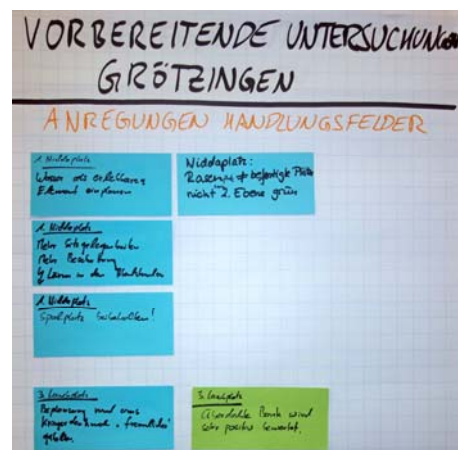 VORBEREITENDE UNTERSUCHUNGEN
GRÖTZINGEN
ANREGUNGEN HANDLUNGSFELDER
1. Niddaplatz
Wasser als erlebbares
Element einplanen
Niddaplatz:
Rasen ≠ befestigte
nicht 2. Ebene grün
1. Niddaplatz
Mehr Sitzgelegenheiten
Mehr
Lärm in den
1. Niddaplatz
Spielplatz beibehalten!
3.
Bepflanzung rund ums
Kriegerdenkmal "freundlicher"
gestalten.
3.
Bank wird
sehr positiv bewertet.